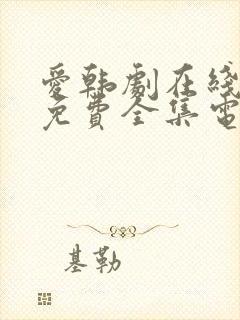 愛韩劇在綫
免費全集電
基勒